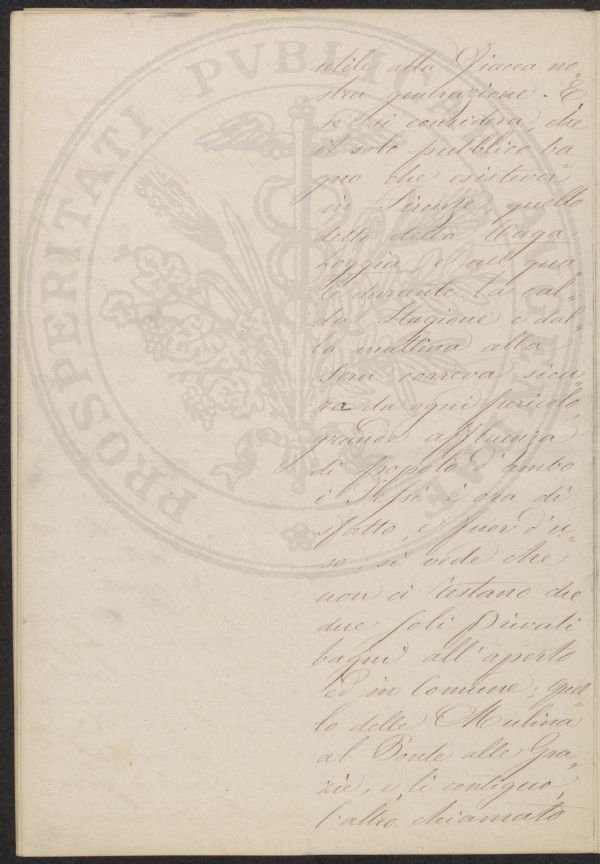 PROSPERITATI PVBLICAE
utile alla fiacca no„
stra generazione. E
se si considera, che
il solo pubblico ba„
gno che esisteva
in Firenze, quello
detto della Vaga
Loggia, e nel qua„
le durante la cal„
da Stagione e dal„
la mattina alla
sera correva sicu„
ra da ogni pericolo
grande affluenza
di popolo d'ambo
i sessi è ora di„
sfatto, e fuor d'u„
so, si vede che
non ci restano che
due soli privati
bagni all'aperto
ed in Comune; quel„
lo delle Mulina
al Ponte alle Gra„
zie, e lì contiguo,
l'altro chiamato